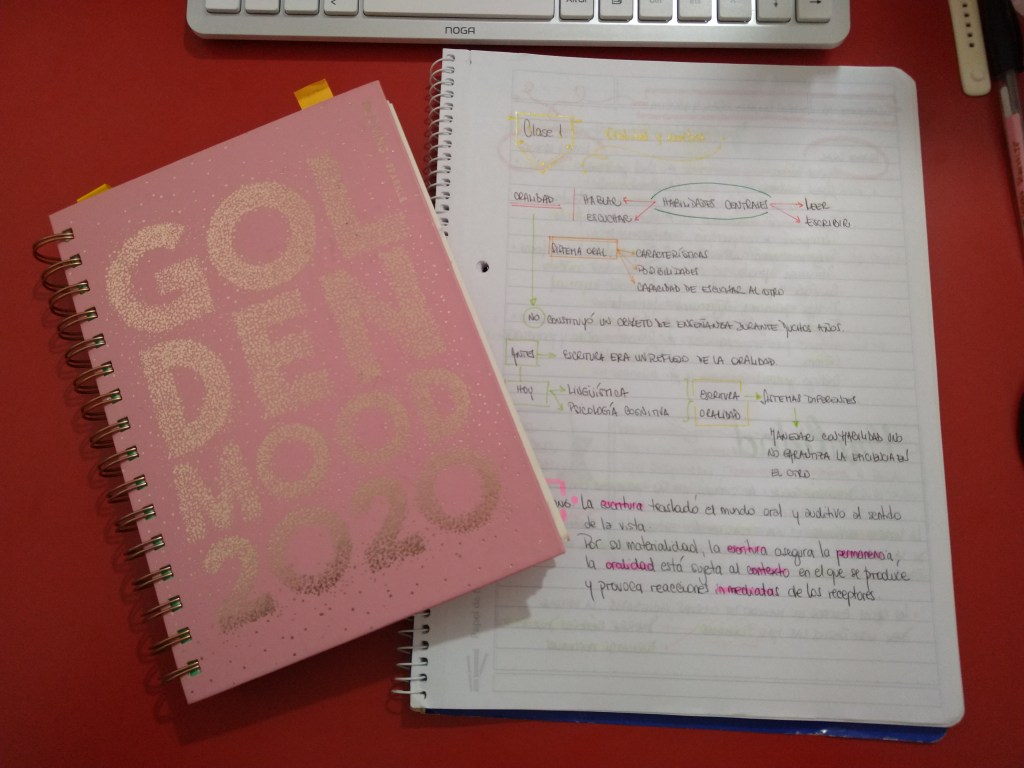 NOGA
GO
DE
MOOD
2020
Clase 1
ORALIDAD
HABLAR
ESCUCHAR
HABILIDADES CENTRALES
LEER
ESCRIBIR
SISTEMA ORAL
CARACTERÍSTICAS
POSIBILIDADES
CAPACIDAD DE ESCUCHAR AL OTRO
NO CONSTITUYÓ UN OBJETO DE ENSEÑANZA DURANTE MUCHOS AÑOS.
ANTES ESCRITURA ERA UN REFLEJO DE LA ORALIDAD.
HOY
LINGÜÍSTICA
PSICOLOGÍA COGNITIVA
ESCRITURA
ORALIDAD
SISTEMAS DIFERENTES
MANEJAR CON HABILIDAD UNO
NO GARANTIZA LA EFICIENCIA EN
EL OTRO
La escritura trasladó el mundo oral y auditivo al sentido
de la vista.
Por su materialidad, la escritura asegura la permanencia;
la oralidad está sujeta al contexto en el que se produce
y provoca reacciones inmediatas de los receptores.